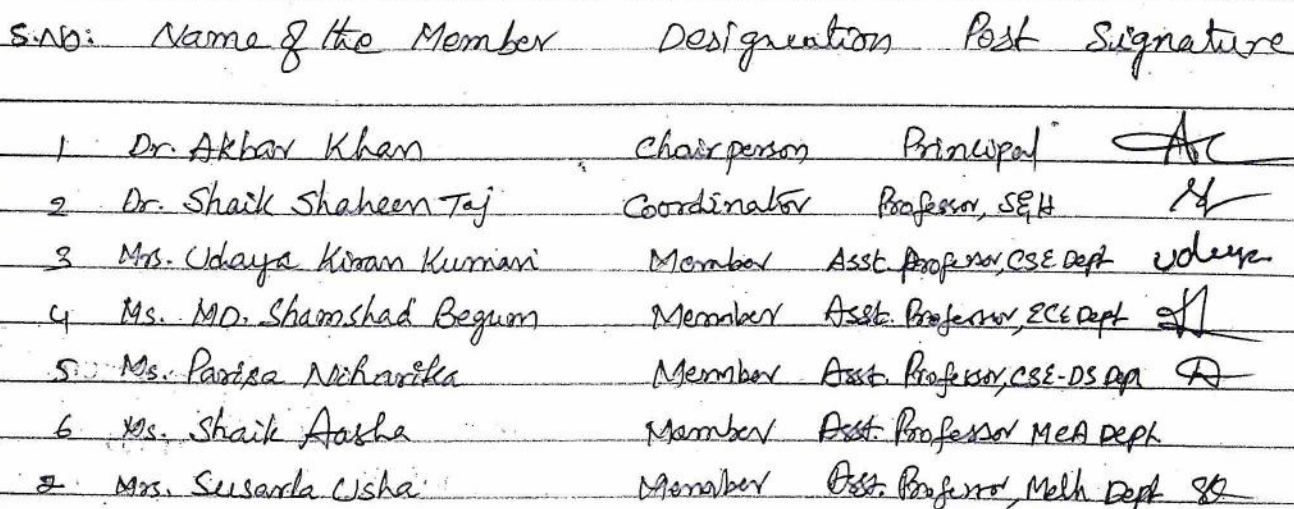 S.No: Name of the Member Designation Post Signature
1 Dr. Akbar Khan Chairperson Principal
2 Dr. Shaik Shaheen Taj Coordinator Professor, S&H
3 Mrs. Udaya Kiran Kumari Member Asst. Professor, CSE Dept Udaya
4 Ms. MD. Shamshad Begum Member Asst. Professor, ECE Dept
5 Ms. Niharika Member Asst. Professor, CSE-DS Dept
6 Ms. Shaik Aasha Member Asst. Professor MCA Dept
Mrs. Susarla Usha Member Asst. Professor, Dept